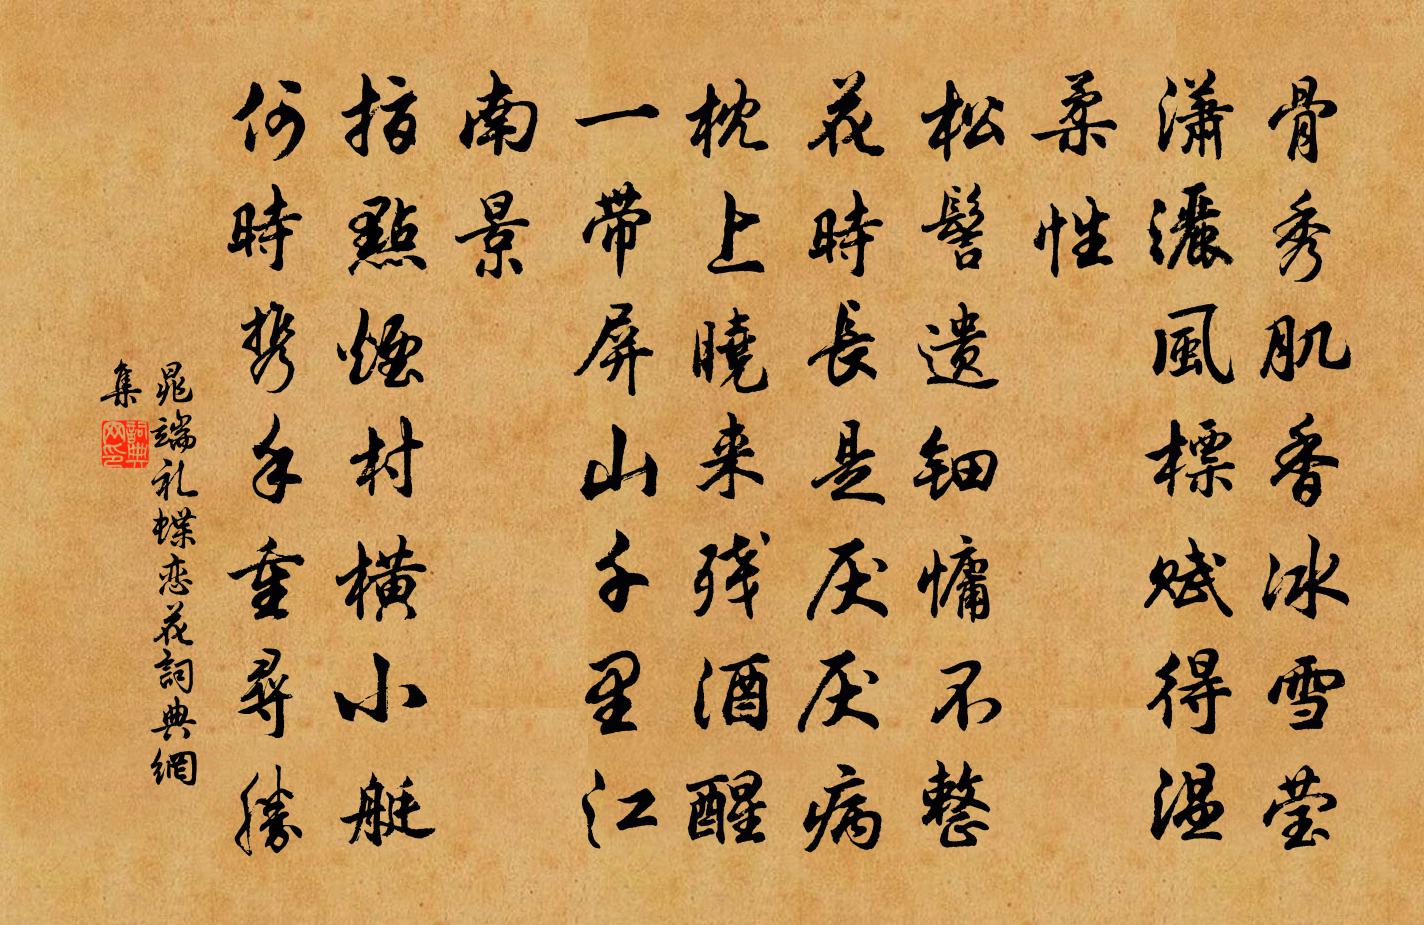 骨秀肌香冰雪莹
潇灑風標赋得温
柔性
松髻遗钿慵不整
花時長是厌厌病
枕上曉来残酒醒
一带屏山千里江
南景
指點煙村横小艇
何時携手重尋勝
晁端礼蝶恋花詞典網
集
詞典网印